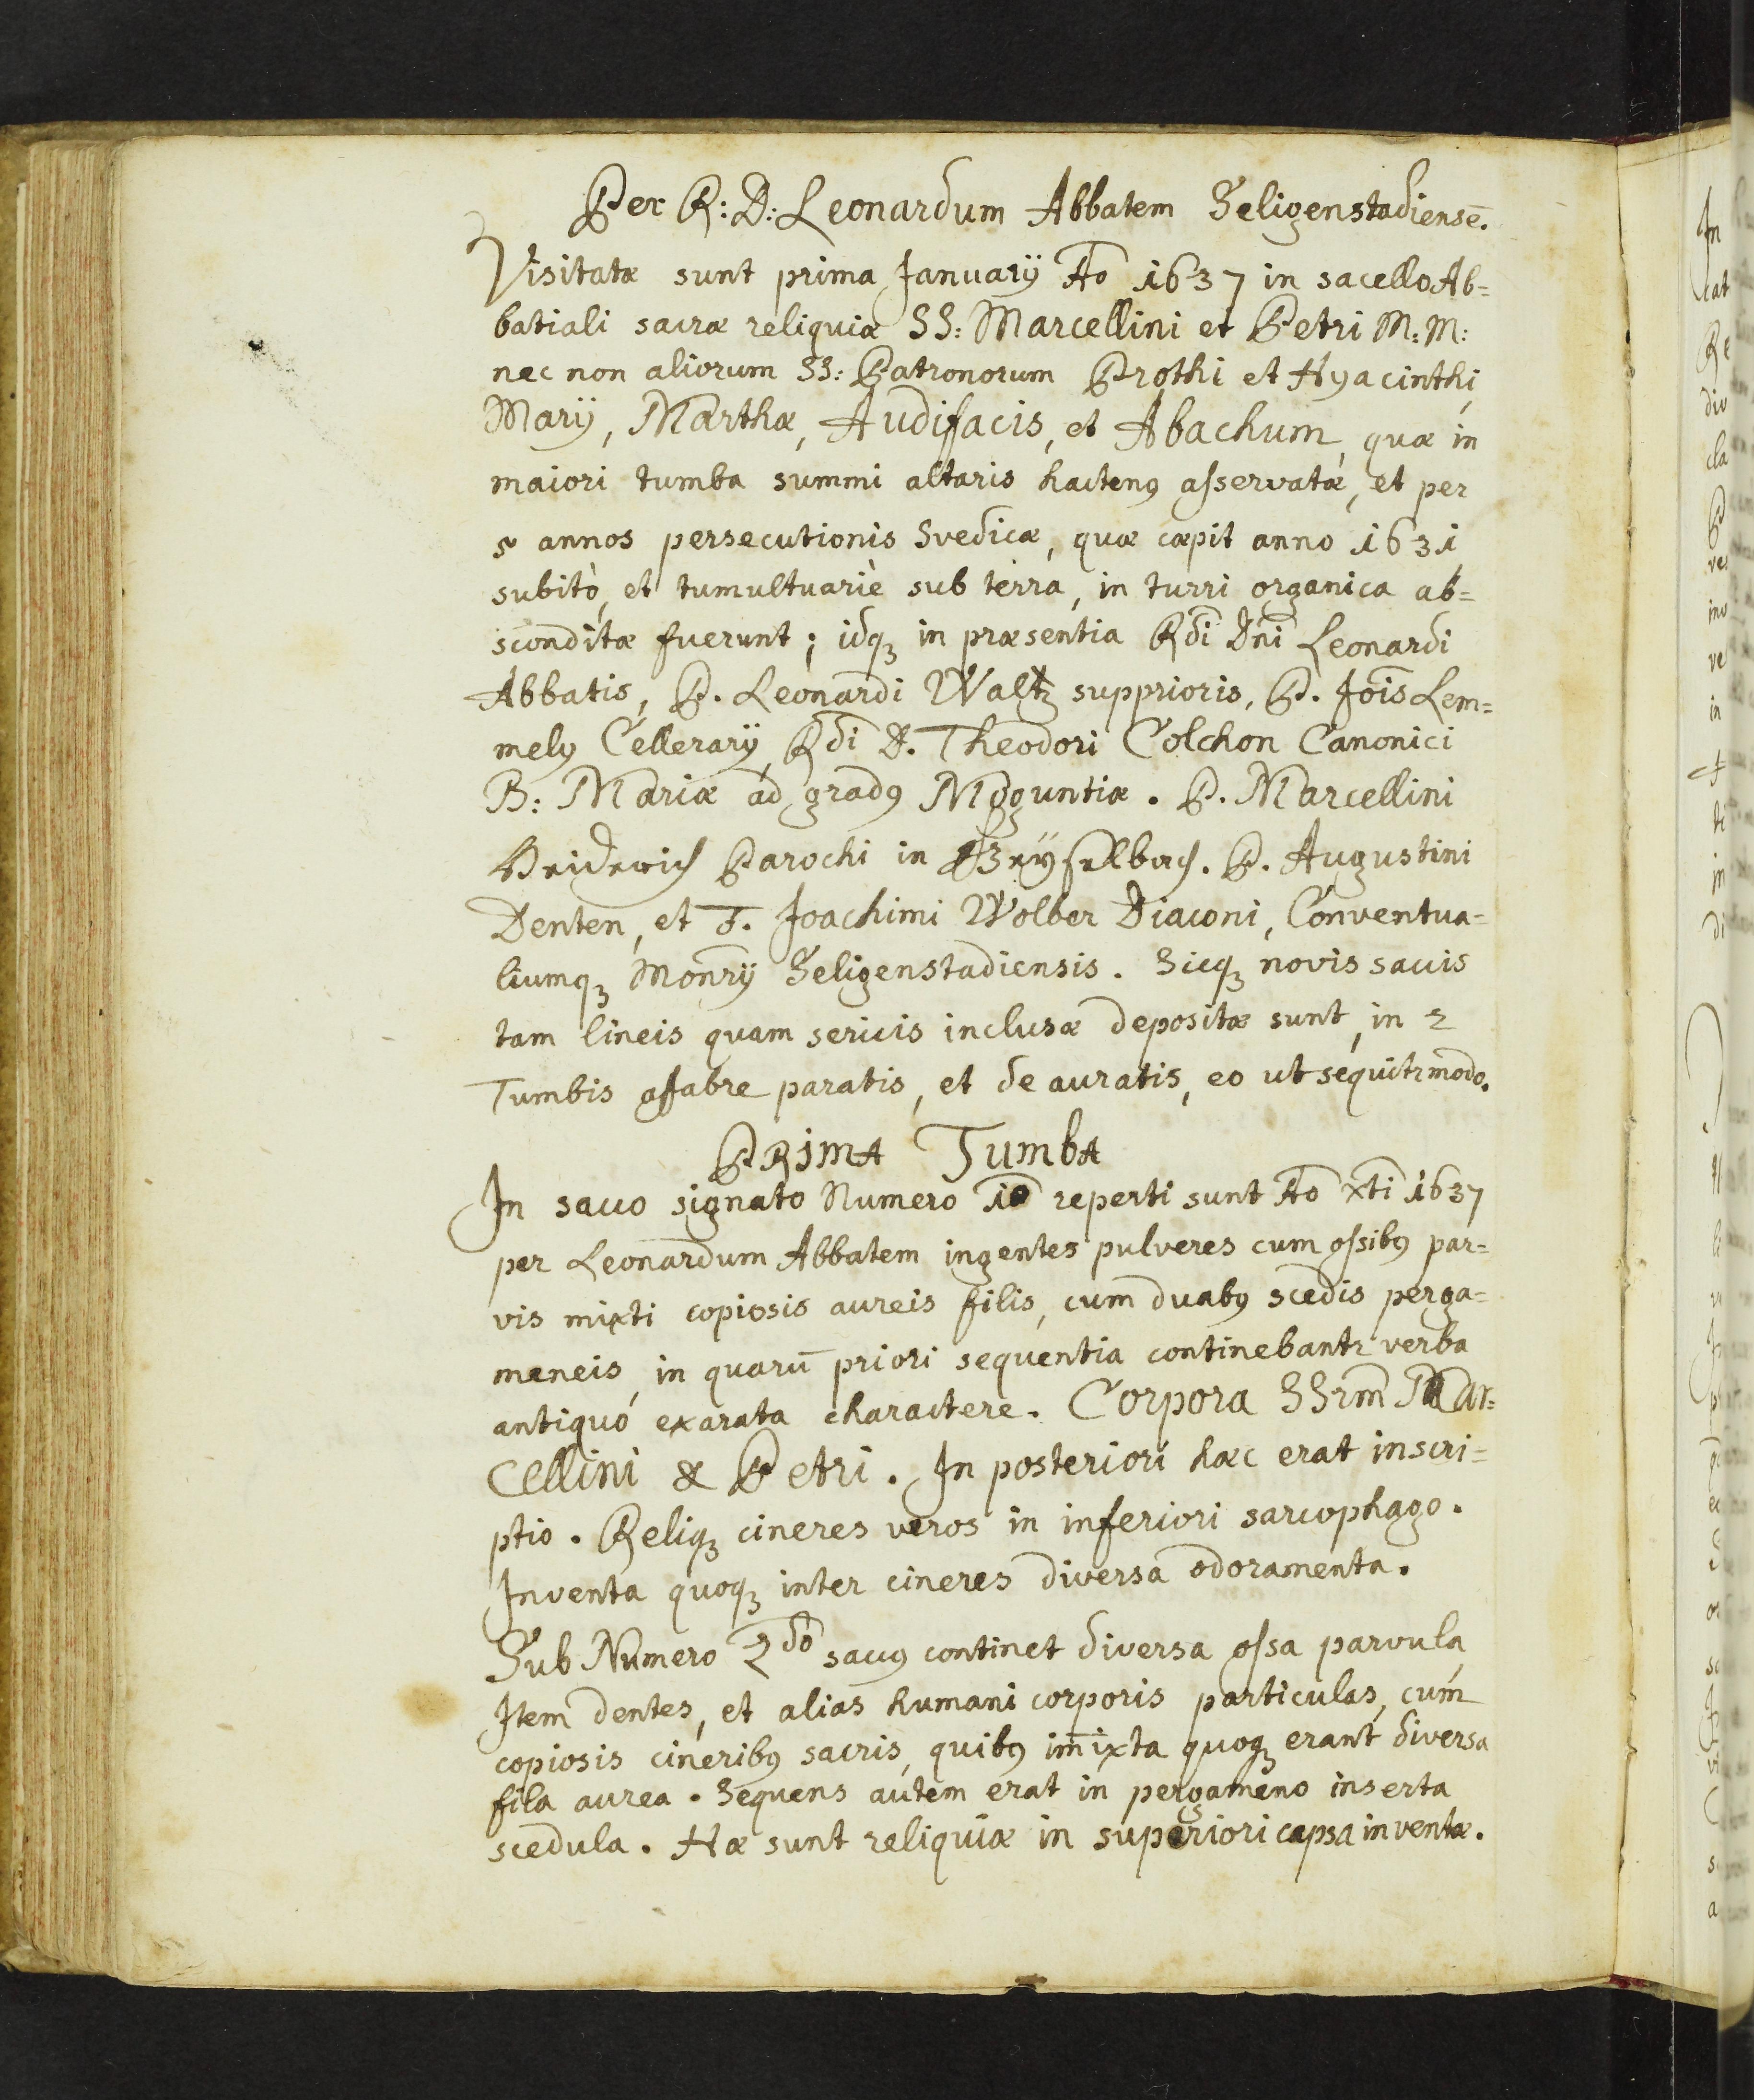 Per R: D: Leonardum Abbatem Seligenstadiensē.
Visitatæ sunt prima Januarij Aō 1637 in sacello Ab=
batiali sacræ reliquiæ SS: Marcellini et Petri M: M:
nec non aliorum SS: Patronorum Prothi et Hyacinthi,
Marij, Marthæ, Audifacis, et Abachum, quæ in
maiori tumba summi altaris hactenꝰ aſservatæ, et per
5 annos persecutionis Svedicæ, quæ cæpit anno 1631
subitò, et tumultuariè sub terra, in turri organica ab=
sconditæ fuerunt; idqꝫ in præsentia Rdi Dni Leonardi
Abbatis, P. Leonardi Waltz supprioris, P. Jois Lem=
melꝰ Cellerarij, Rdi D. Theodori Colchon Canonici
B: Mariæ ad gradꝰ Moguntiæ. P. Marcellini
Parochi in P. Augustini
Denten, et F. Joachimi Wolber Diaconi, Conventua=
liumqꝫ Monrij Seligenstadiensis. Sicqꝫ novis saccis
tam lineis quam sericis inclusæ depositæ sunt, in 2
Tumbis affabre paratis, et de auratis, eo ut sequitr modo.
PRIMA TumbA
In sacco signato Numero 1o reperti sunt Aō Xti 1637
per Leonardum Abbatem ingentes pulveres cum oſsibꝰ par=
vis mixti copiosis aureis filis, cum duabꝰ scedis perga=
meneis, in quarū priori sequentia continebantr verba
antiquo exarata charactere. Corpora SSrm Mar=
cellini & Petri. In posteriori hæc erat inscri=
ptio. Reliqꝫ cineres veros in inferiori sarcophago.
Inventa quoqꝫ inter cineres diversa odoramenta.
Sub Numero 2do saccꝰ continet diversa oſsa parvula,
Item dentes, et alias humani corporis particulas, cum
copiosis cineribꝰ sacris, quibꝰ im̄ixta quoqꝫ erant diversa
fila aurea. Sequens autem erat in pergameno inserta
scedula. Hæ sunt reliquiæ in superiori capsa inventæ.